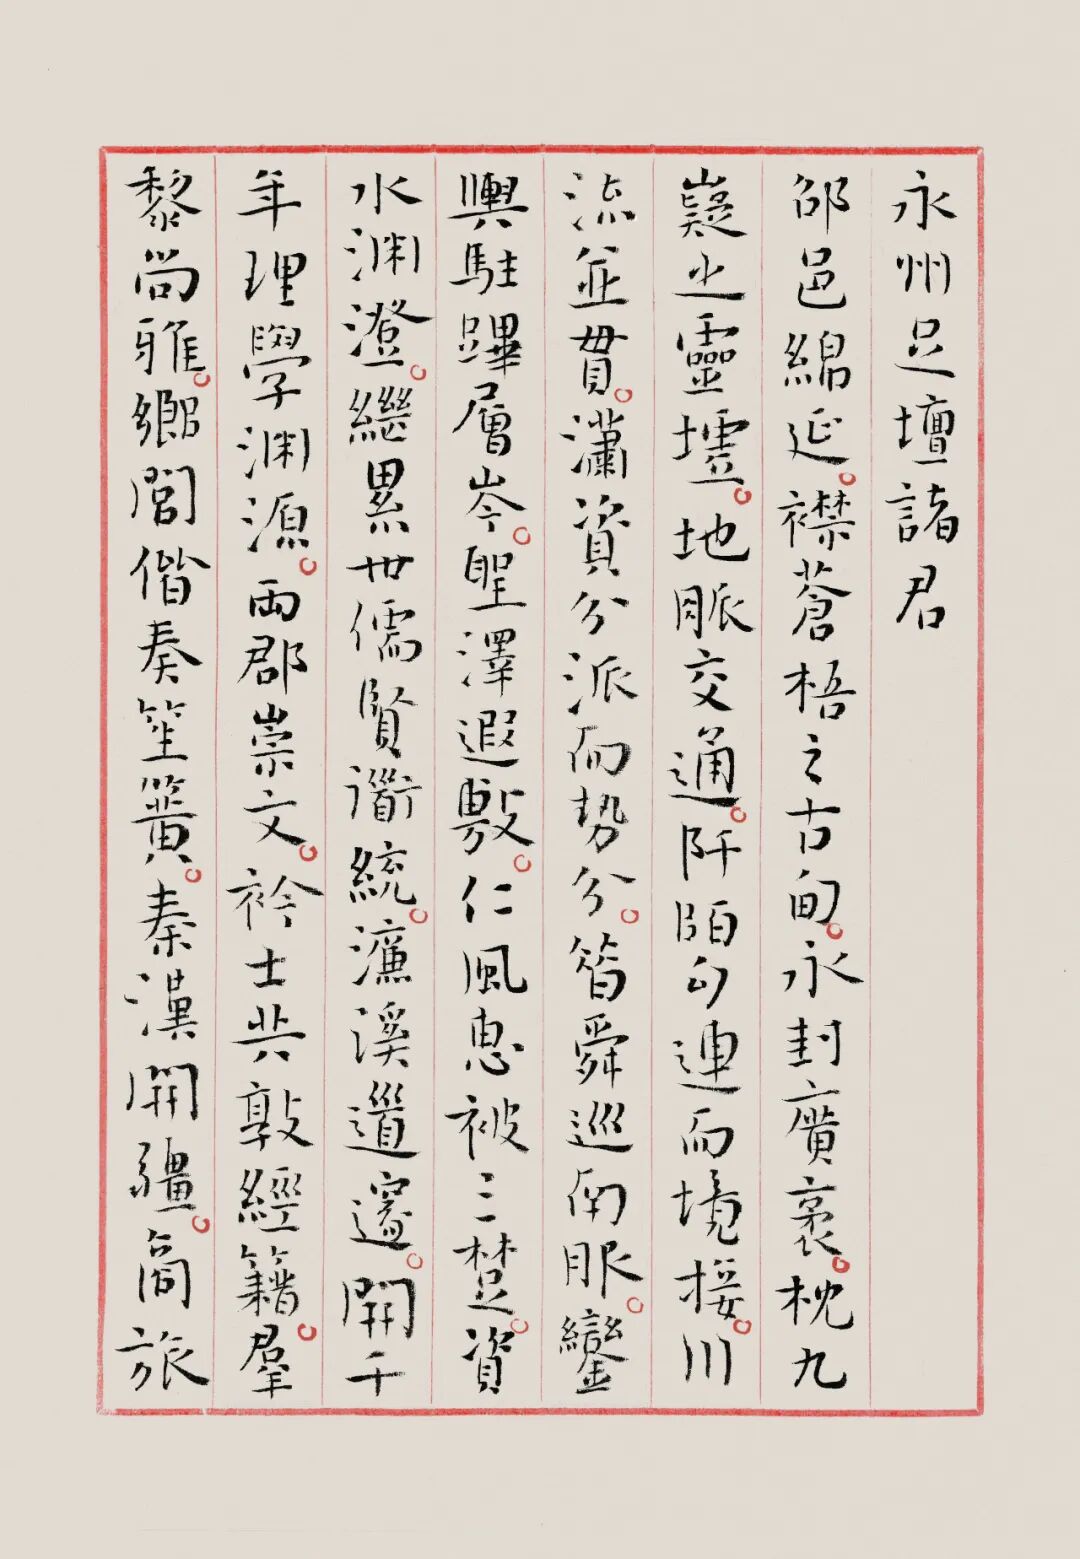 永州足壇諸君
邵邑綿延。襟蒼梧之古甸。永封廣袤。枕九
嶷之靈墟。地脈交通。阡陌勾連而境接。川
流並貫。瀟資分派而势分。昔舜巡南服。鑾
輿駐蹕層岑。聖澤遐敷。仁風惠被三楚。資
水淵澄。繼累世儒賢衟統。濂溪道邃。開千
年理學淵源。兩郡崇文。衿士共敦經籍。羣
黎尚雅。鄉閭偕奏笙簧。秦漢開疆。商旅